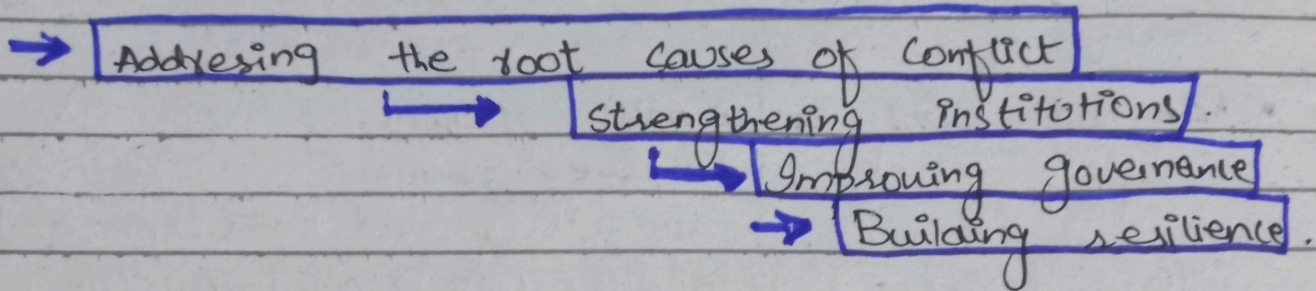 → Addresing the root causes of Conflict
→ Strengthening institutions.
→ Improving governance
→ Building resilience.